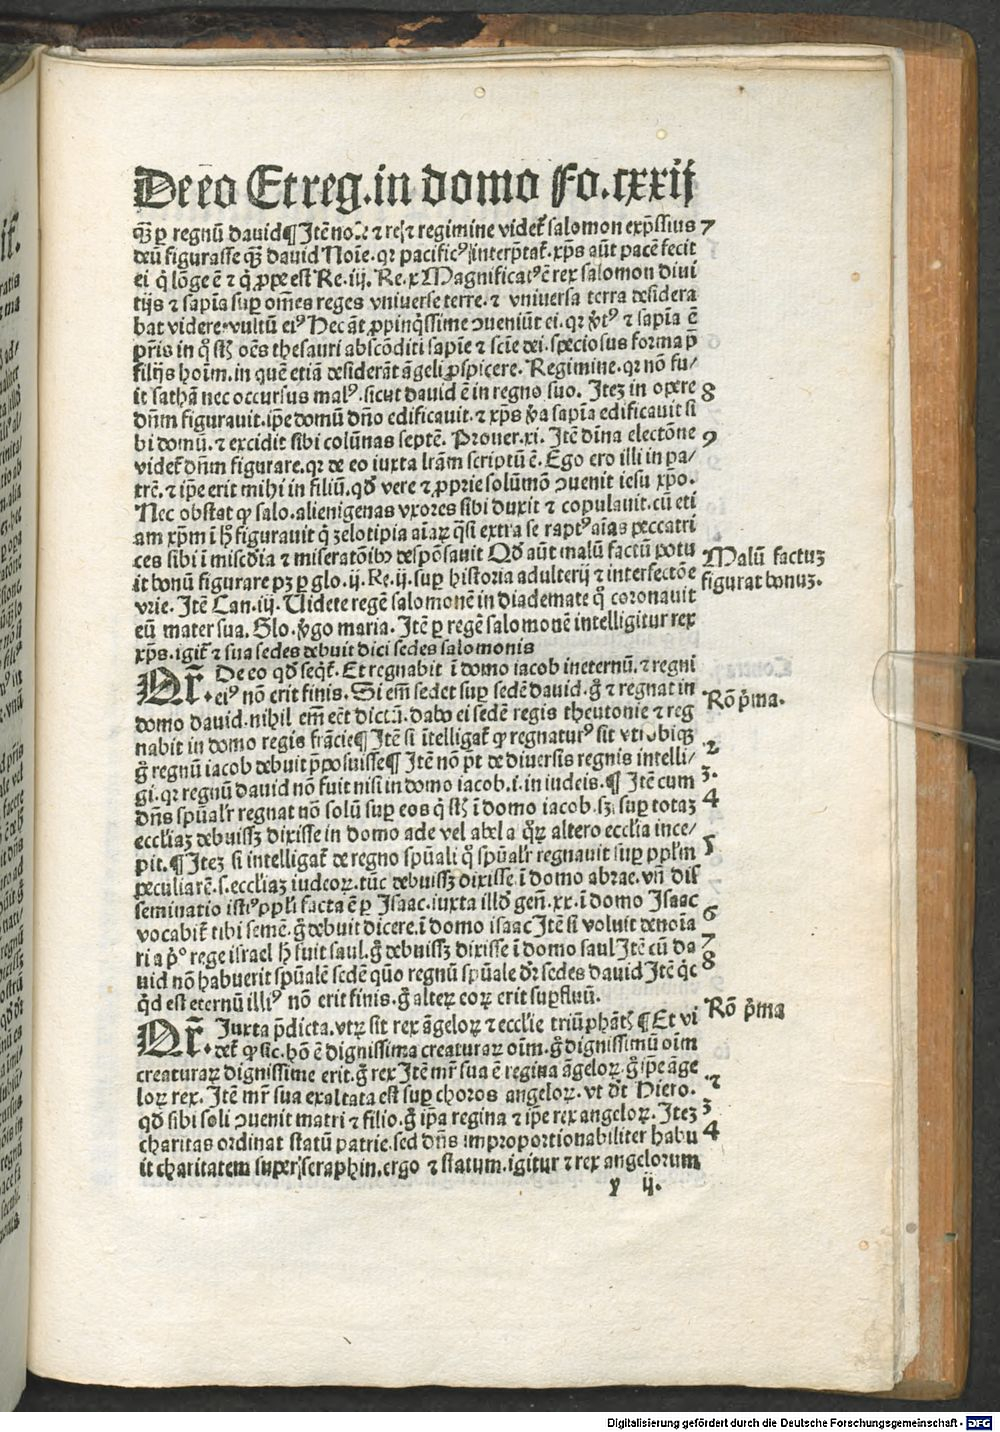 De eo Et reg. in domo Fo. cxxij
qȝ ꝑ regnū dauid¶ Itē &amp; regimine videt᷑ salomon exp̄ssius 7
deū figurasse qȝ dauid Noīe. qꝛ pacificꝰ interp̄tat᷑. xp̄s aūt pacē fecit
ei q̇ lōge ē ⁊ q̇ ꝓpe est Re. iij. Re. x Magnificatꝰ ē rex salomon diui
tijs ⁊ sapīa suꝑ om̄es reges vniuerse terre. ⁊ vniuersa terra desidera
bat videre vultū eiꝰ Hec aūt ꝓpinq̇ssime ↄueniūt ei. qꝛ ⁊ sapīa ē
pr̄is in quo sunt oēs thesauri abscōditi sapīe ⁊ scīe dei. speciosus forma p̄
filijs hoīm. in quē etiā desiderāt āgeli ꝓspicere. Regimine. qꝛ nō fu/
it sathā nec occursus malꝰ. sicut dauid ē in regno suo. Itez in opere 8
dn̄m figurauit. ip̄e domū dn̄o edificauit. ⁊ xp̄s sapīa edificauit si
bi domū. ⁊ excidit sibi colūnas septē. Prouer. xi. Itē dīna electōne 9
videt᷑ dn̄m figurare. qꝛ de eo iuxta lr̄am scriptū ē. Ego ero illi in pa/
trē. ⁊ ip̄e erit mihi in filiū. qd̄ vere ⁊ ꝓprie solūmō ↄuenit iesu xp̄o.
Nec obstat ꝙ salo. alienigenas vxores sibi duxit ⁊ copulauit. cū eti
am xp̄m ī hͦ figurauit q̇ zelotipia aīaꝝ q̄si extra se raptꝰ aīas peccatri
ces sibi ī misc̄dia ⁊ miseratōibꝰ despōsauit Qd̄ aūt malū factū potu
it bonū figurare pȝ ꝑ glo. ij. Re. ij. suꝑ historia adulterij ⁊ interfectōe
vrie. Itē Can. iij. Uidete regē salomonē in diademate qͦ coronauit
eū mater sua. Glo. v̄go maria. Itē ꝑ regē salomonē intelligitur rex
xp̄s. igit᷑ ⁊ sua sedes debuit dici sedes salomonis
Malū factuȝ
figurat bonuȝ.
Qr̄. De eo qd̄ seqt᷑. Et regnabit ī domo iacob in eternū. ⁊ regni
eiꝰ nō erit finis. Si em̄ sedet suꝑ sedē dauid. g̊ ⁊ regnat in
domo dauid. nihil em̄ eēt dictū. dabo ei sedē regis theutonie ⁊ reg
nabit in domo regis frācie¶ Itē si ītelligat᷑ ꝙ regnaturꝰ sit vtrobiqȝ
g̊ regnū iacob debuit p̄posuisse¶ Itē nō pōt de diuersis regnis intelli/
gi. qꝛ regnū dauid nō fuit nisi in domo iacob. i. in iudeis. ¶ Itē cum
dn̄s spūalr̄ regnat nō solū suꝑ eos q̇ sūt ī domo iacob. sȝ suꝑ totaȝ
eccl̄iaȝ debuissȝ dixisse in domo ade vel abel a quoꝝ altero eccl̄ia ince/
pit. ¶ Itez si intelligat᷑ de regno spūali qͦ spūalr̄ regnauit suꝑ ppl̄m
peculiarē. s. eccl̄iaȝ iudeoꝝ. tūc debuissȝ dixisse ī domo abrae. vn̄ dis
seminatio istiꝰ ppl̄i facta ē ꝑ Isaac. iuxta illd̄ gen̄. xx. ī domo Isaac
vocabit᷑ tibi semē. g̊ debuit dicere. ī domo isaac Itē si voluit denoīa
ri a p̄ͦ rege israel hͦ fuit saul. g̊ debuissȝ dixisse ī domo saul Itē cū da
uid nō habuerit spūalē sedē quō regnū spūale dr̄ sedes dauid Itē q̇c
q̇d est eternū illiꝰ nō erit finis. g̊ alteꝝ eoꝝ erit suꝑfluū.
Rō p̄ma.
2
3.
4
5
6
7
8
Qr̄. Iuxta p̄dicta. vtꝝ sit rex āgeloꝝ ⁊ eccl̄ie triūphātis ¶ Et vi
det᷑ ꝙ sic. hō ē dignissima creaturaꝝ oīm. g̊ dignissimū oīm
creaturaꝝ dignissime erit. g̊ rex Itē mr̄ sua ē regina āgeloꝝ. g̊ ip̄e āge
loꝝ rex. Itē mr̄ sua exaltata est suꝑ choros angeloꝝ. vt dt̄ Hiero.
qd̄ sibi soli ↄuenit matri ⁊ filio. g̊ ip̄a regina ⁊ ip̄e rex angeloꝝ. Itez
charitas ordinat statū patrie. sed dn̄s improportionabiliter habu
it charitatem super seraphin. ergo ⁊ statum. igitur ⁊ rex angelorum
Rō p̄ma
2
3
4
y ij.
Digitalisierung gefördert durch die Deutsche Forschungsgemeinschaft - DFG